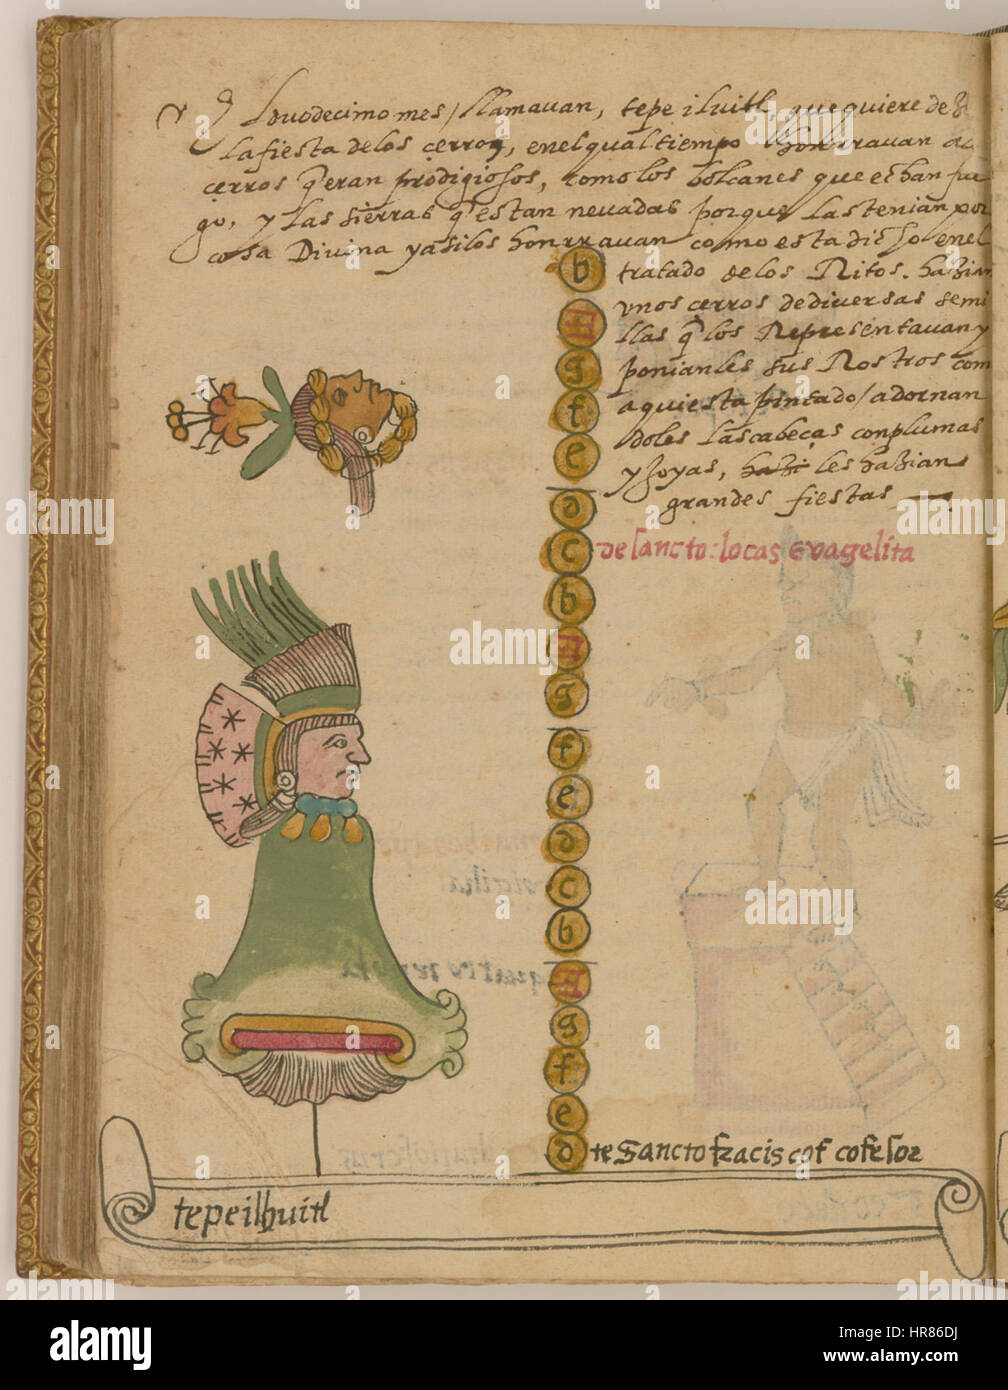 Duodecimo mes / llamauan, tepe iluitl, que quiere dezir
la fiesta de los cerros, en el qual tiempo honrrauan
cerros q̃ eran prodigiosos, como los bolcanes que echan fue
go, y las sierras q̃ estan neuadas porque las tenian por
cosa Diuina y asi los honrrauan como esta dicho en el
tratado de los Ritos. hazian
unos cerros de diuersas semi
llas q̃ los Representauan y
ponianles sus Rostros com
aqui esta pintado / adornan
doles las cabeças con plumas
y Joyas, les hazian
grandes fiestas
b
A
g
f
e
d
c de sancto: locas evagelita
b
A
g
f
e
d
c
b
A
g
f
e
d te sancto fracis cof cofesor
tepeilhuitl
alamy
HR86DJ
www.alamy.com